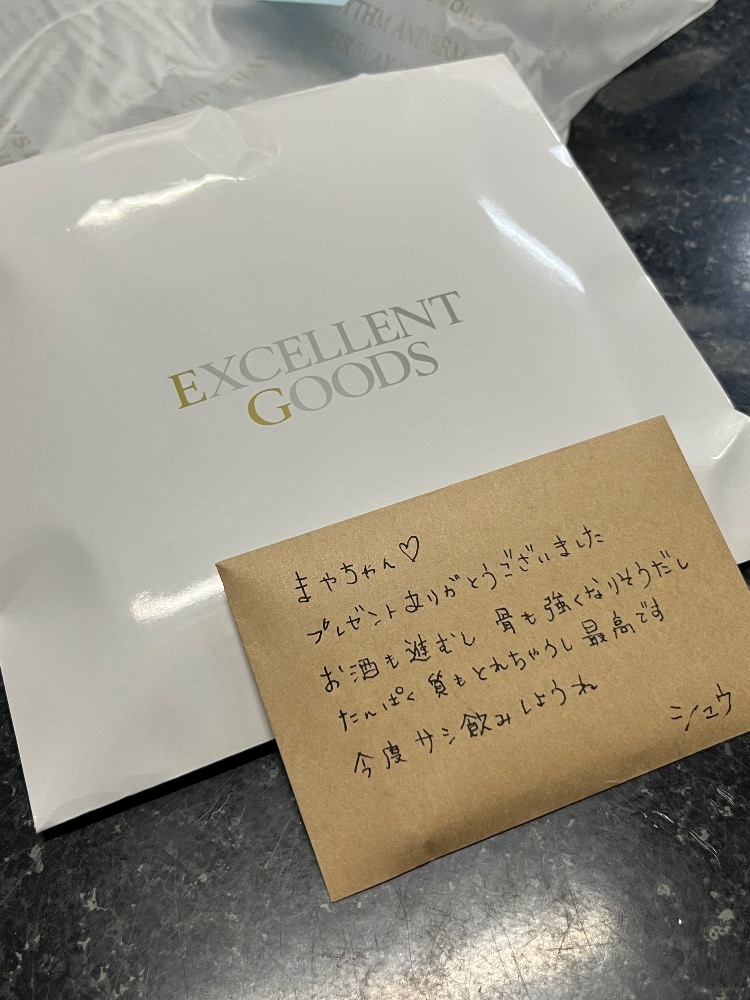 EXCELLENT
GOODS
まやちゃん♡
プレゼントありがとうございました
お酒も進むし 骨も強くなりそうだし
たんぱく質もとれちゃうし 最高です
今度 サシ飲みしようね
シュウ